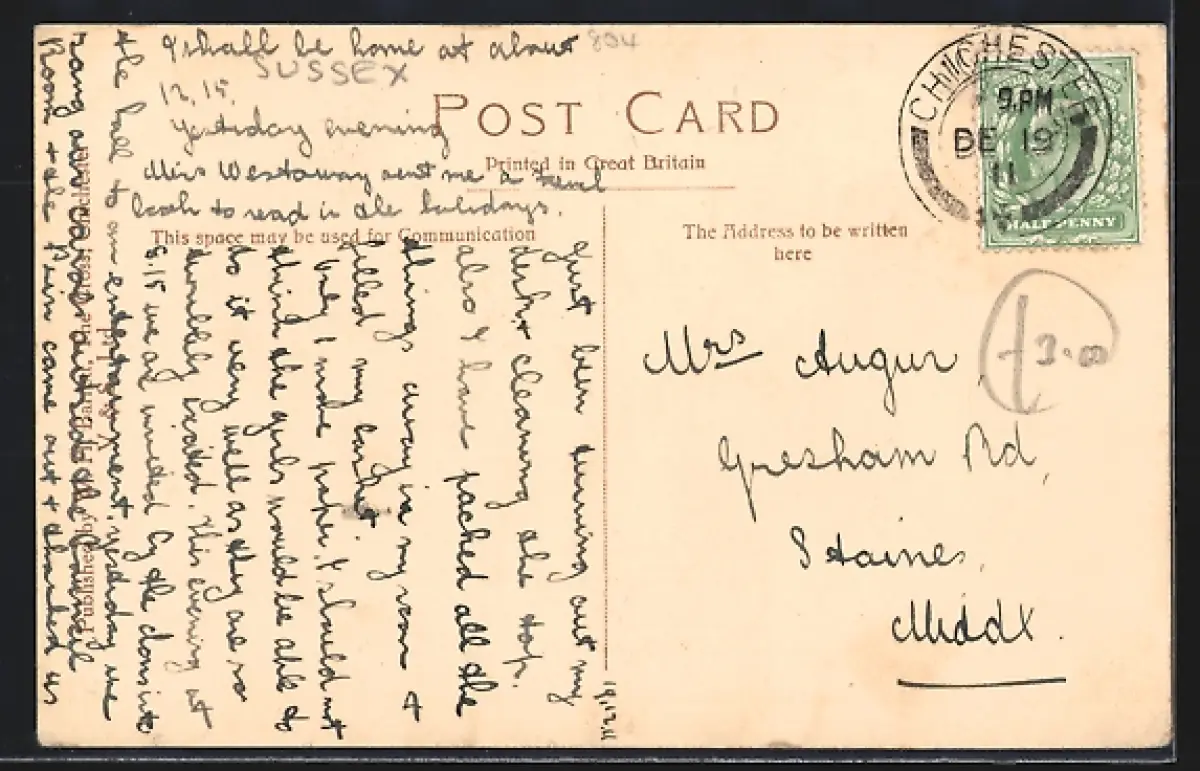 I shall be home at about
804
SUSSEX
12.15.
Yesterday evening
Miss Westaway sent me a
book to read in the holidays.
POST CARD
Printed in Great Britain
This space may be used for Communication
The Address to be written
here
CHICHESTER
9.PM
DE 19
11
HALF PENNY
19.12.11
Just been turning out my
desk & cleaning the top.
also I have packed all the
things away in my room &
filled my basket.
Only I made paper. I should not
think the girls would be able to
do it very well as they are so
This evening at
8.15 we are invited by the
the hall to an entertainment. yesterday we
sang our carols outside the Council
Room & the came out & thanked us
Published by the Cross, Chichester
Mrs Augur
Gresham Rd,
Staines,
Middx.
3.00